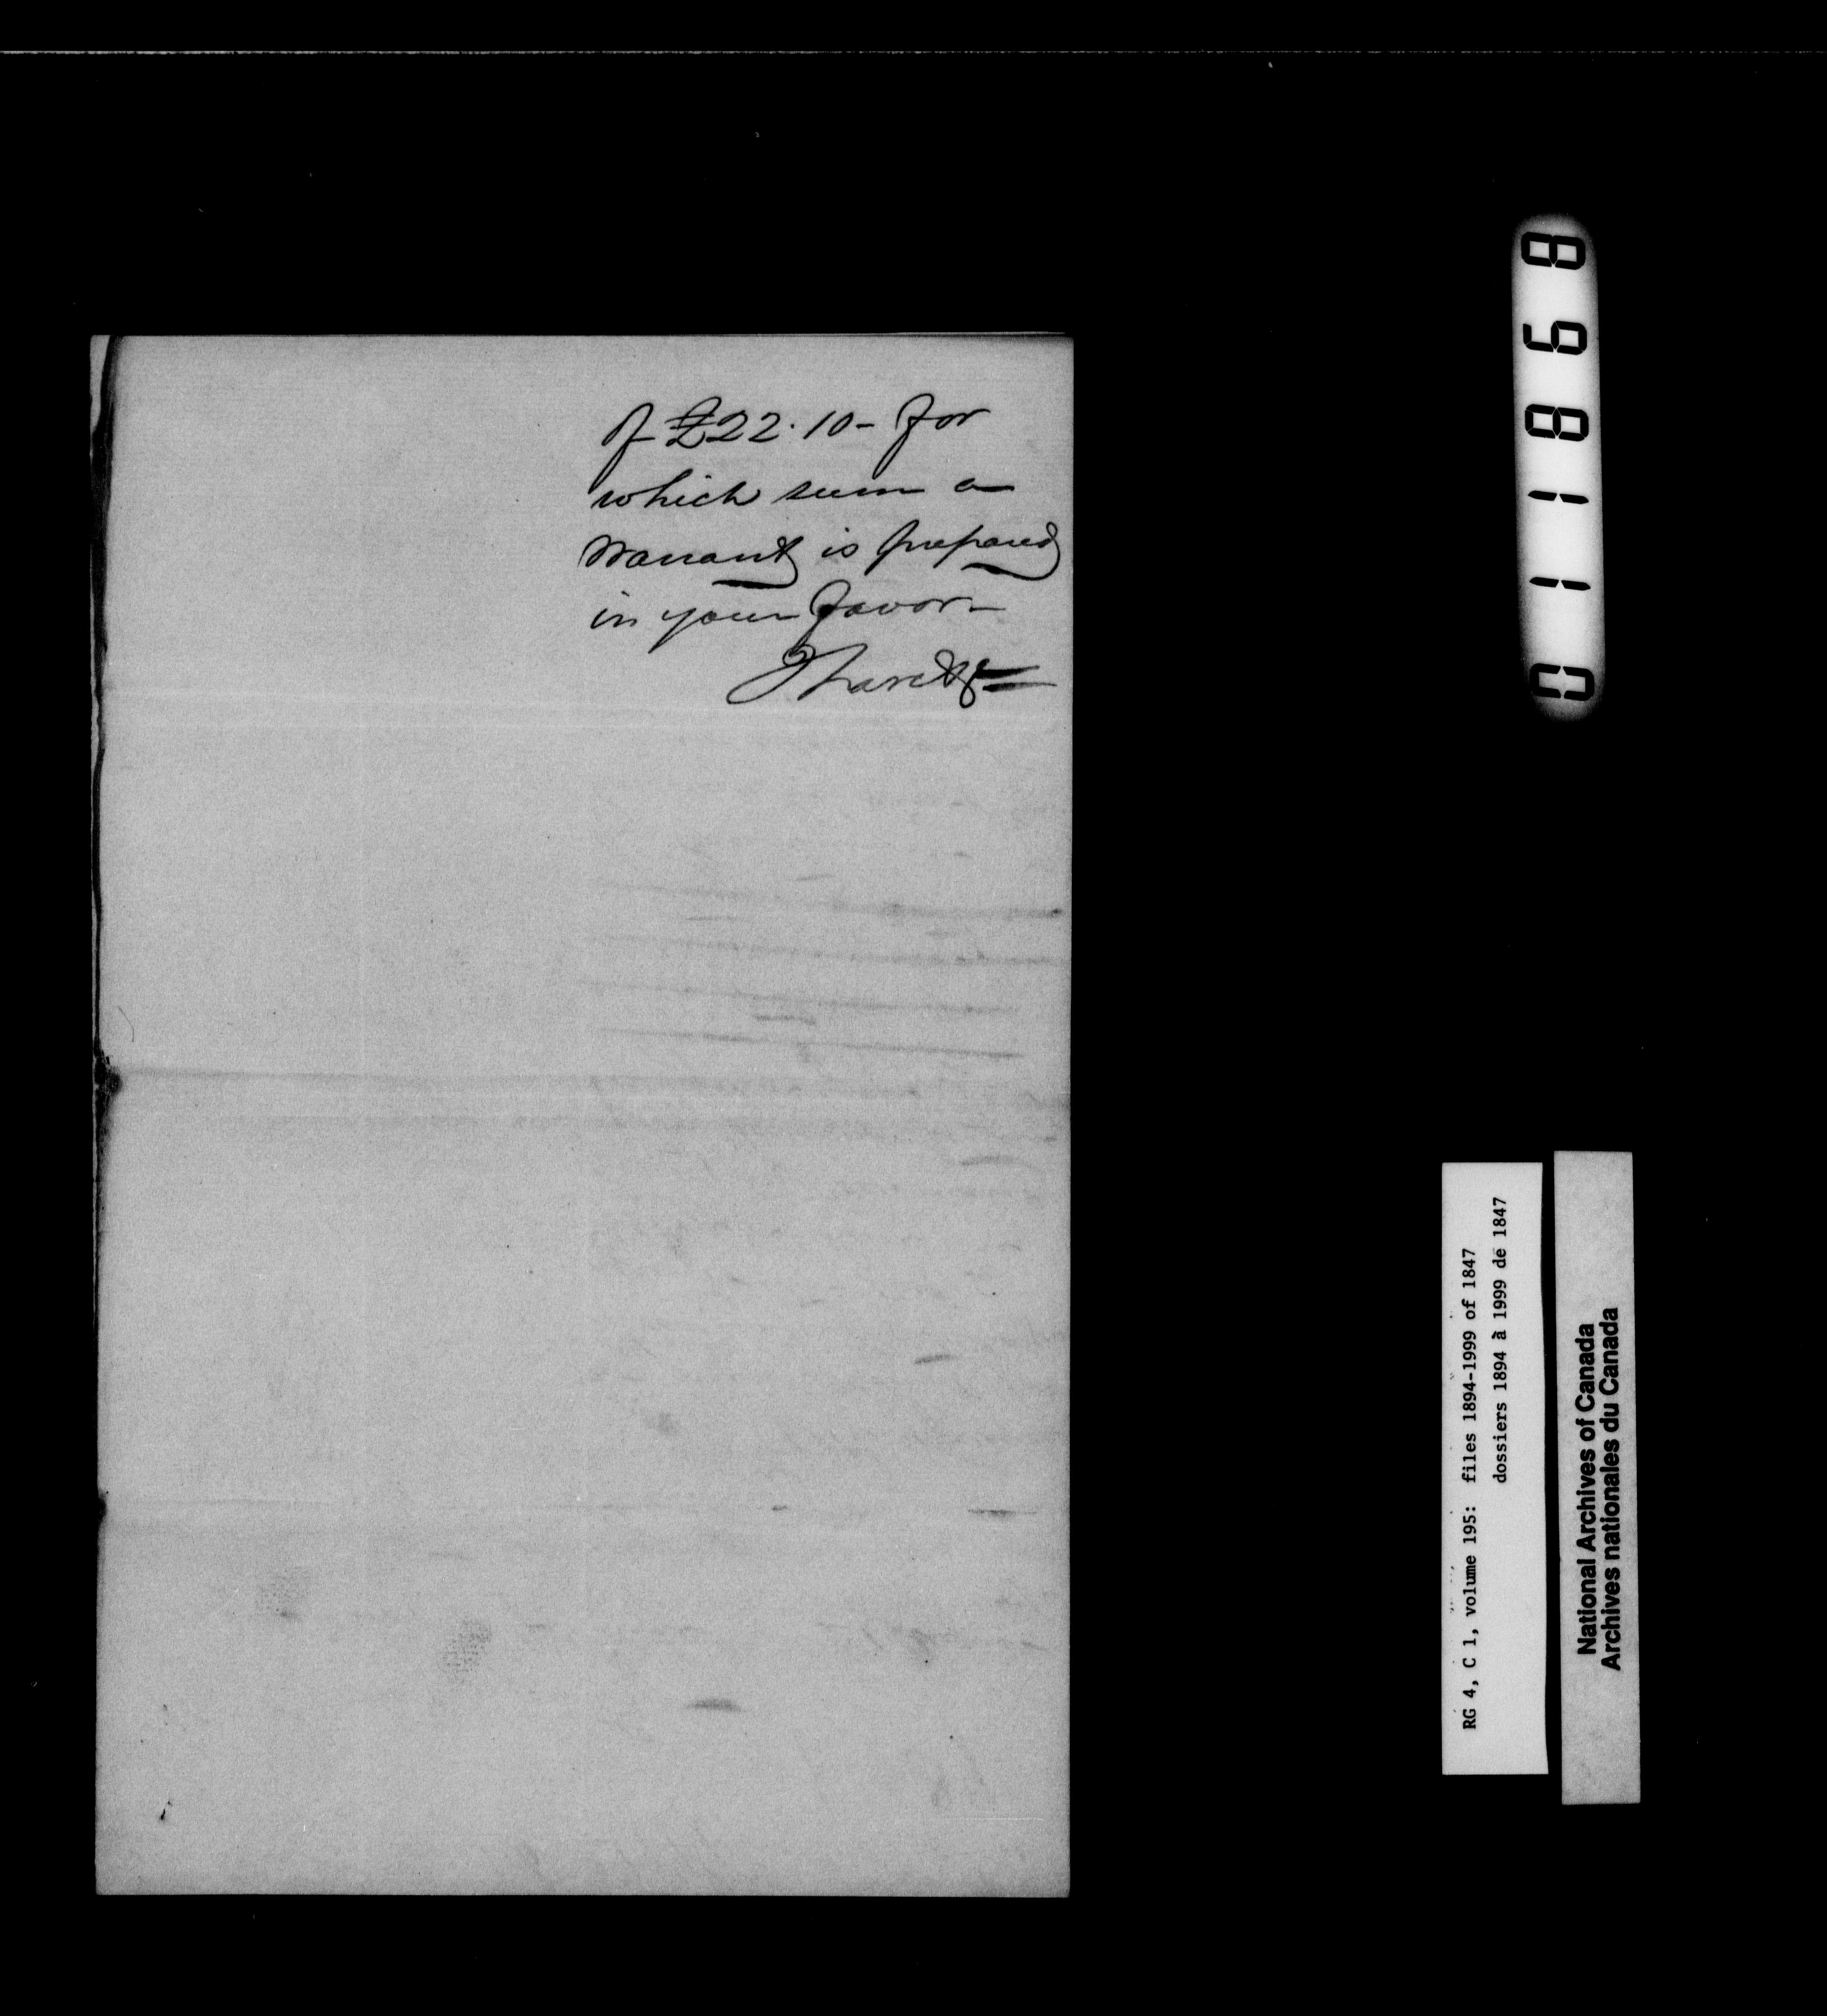 of £22.10- for
which sum a
Warrant is prepared
in your favor-
I have &c
011868
RG 4, C 1, volume 195: files 1894-1999 of 1847
dossiers 1894 à 1999 de 1847
National Archives of Canada
Archives nationales du Canada